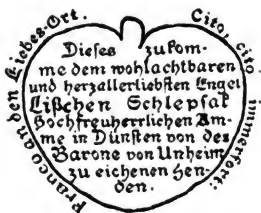 Franco an den Liebes-Ort.
Cito, cito immerfort:
Dieses zukom-
me dem wohlachtbaren
und herzallerliebsten Engel
Lißchen Schlepsak
Hochfreuherrlichen Am-
me in Dünsten von der
Barone von Unheim
zu eichenen Hen-
den.